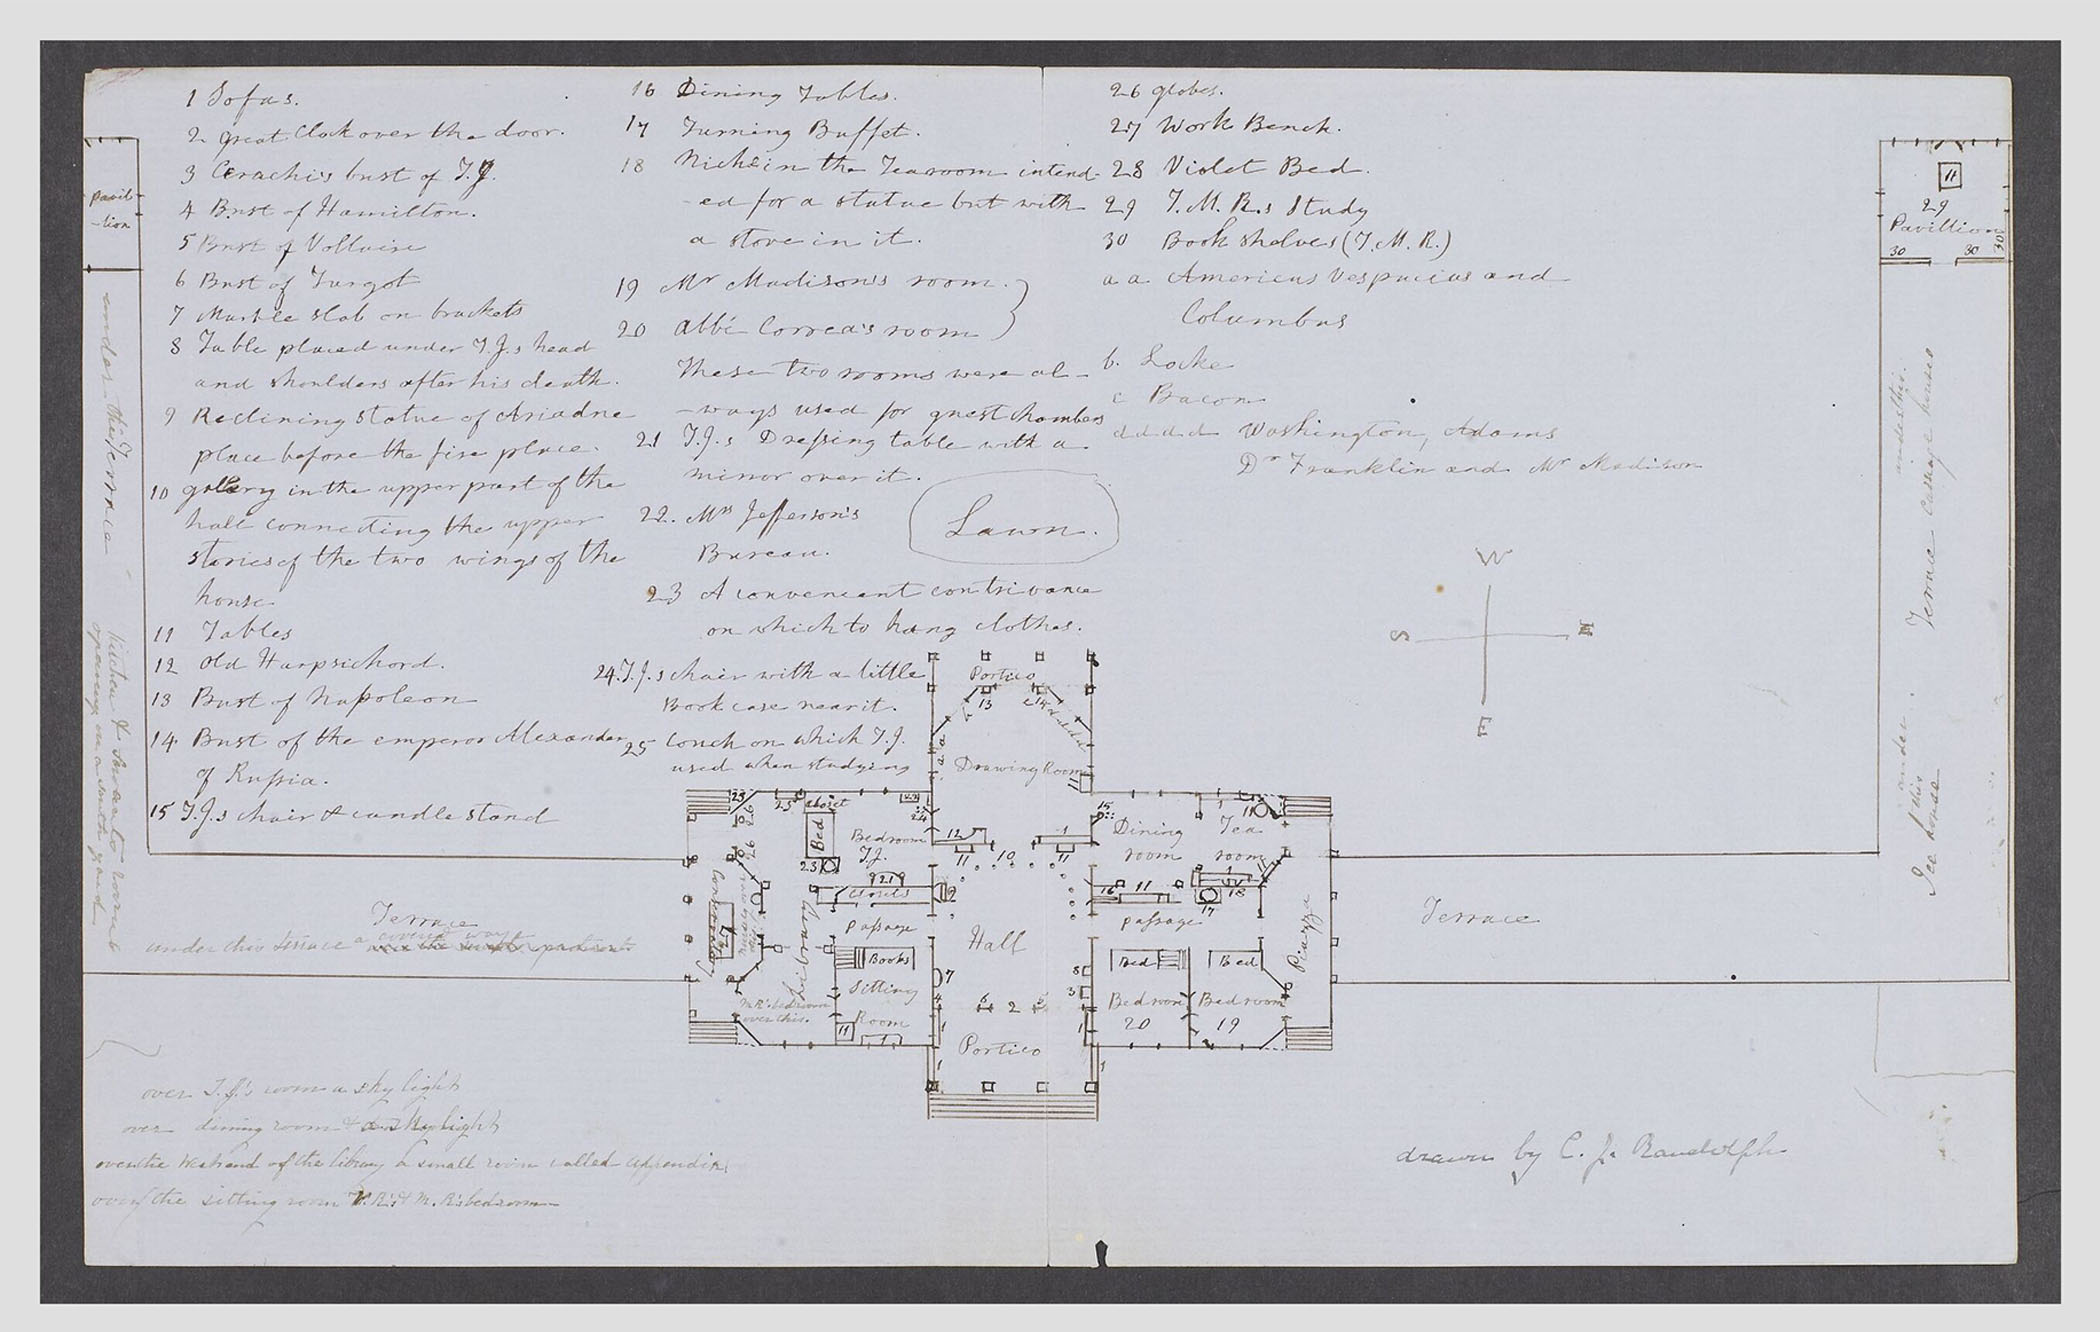 1 Sofas.
2 great Clock over the door.
3 Cerachi's bust of T.J.
4 Bust of Hamilton.
5 Bust of Voltaire
6 Bust of Turgot
7 Marble slab on brackets
8 Table placed under T.J.s head
and shoulders after his death.
9 Reclining Statue of Ariadne
place before the fire place.
10 gallery in the upper part of the
hall connecting the upper
stories of the two wings of the
house
11 Tables
12 Old Harpsichord.
13 Bust of Napoleon
14 Bust of the emperor Alexander
of Russia.
15 T.J.s chair & candle stand
16 Dining Tables.
17 Turning Buffet.
18 Niche in the Tearoom intend-
-ed for a statue but with
a stove in it.
19 Mr Madison's room.
20 Abbé Correa's room
These two rooms were al-
-ways used for guest chambers
21 T.J.s Dressing table with a
mirror over it.
22. Mrs Jefferson's
Bureau.
23 A convenient contrivance
on which to hang clothes.
24. T.J.s chair with a little
Book case near it.
25 Couch on which T.J.
used when studying
26 globes.
27 Work Bench.
28 Violet Bed.
29 T.M.R.s Study
30 Book shelves (T.M.R.)
a a Americus Vespucius and
Columbus
b. Locke
c Bacon
d d d d Washington, Adams
Dr Franklin and Mr Madison
Lawn.
W
S
N
E
pavil
-lion
under the Terrace
Kitchen & servants rooms
opening on a south yard
11
29
Pavillion
30 30 30
under this.
Terrace Carriage houses
under
this
Ice house
Terrace
under this terrace a covered way
Terrace
Portico
13
14
Drawing Room
11
Closet
Bed
Bedroom
T.J.
25
26
26
23
21
Closets
passage
Conservatory
Library
Books
Sitting
Room
11
M R's bedroom
over this.
12
11 10 11
Hall
7
8
3
4
6 2 5
Portico
15
Dining
room
Tea
room
11
16 11
17
18
passage
Bed
Bed
Bedroom
20
Bedroom
19
Piazza
over T.J.'s room a sky light
over dining room a sky light
over the West end of the library a small room called appendix
over the sitting room T.R's & M.R's bedroom
drawn by C. J. Randolph